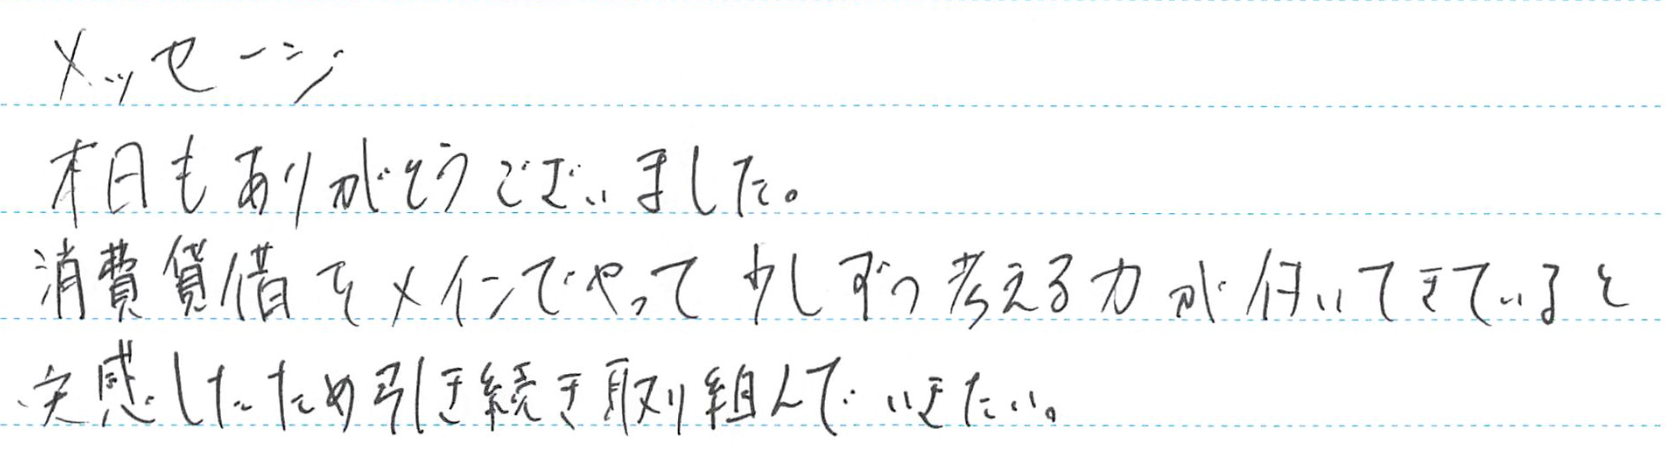 メッセージ
本日もありがとうございました。
消費貸借をメインでやって少しずつ考える力が付いてきていると
実感したため引き続き取り組んでいきたい。